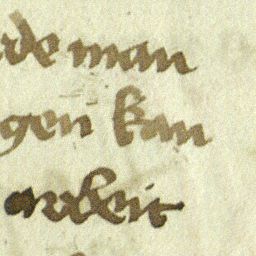 de man
gen kan
arbeit